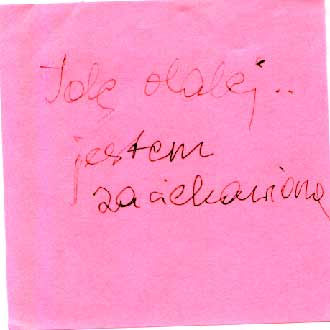 Idę dalej..
jestem
zaciekawiona